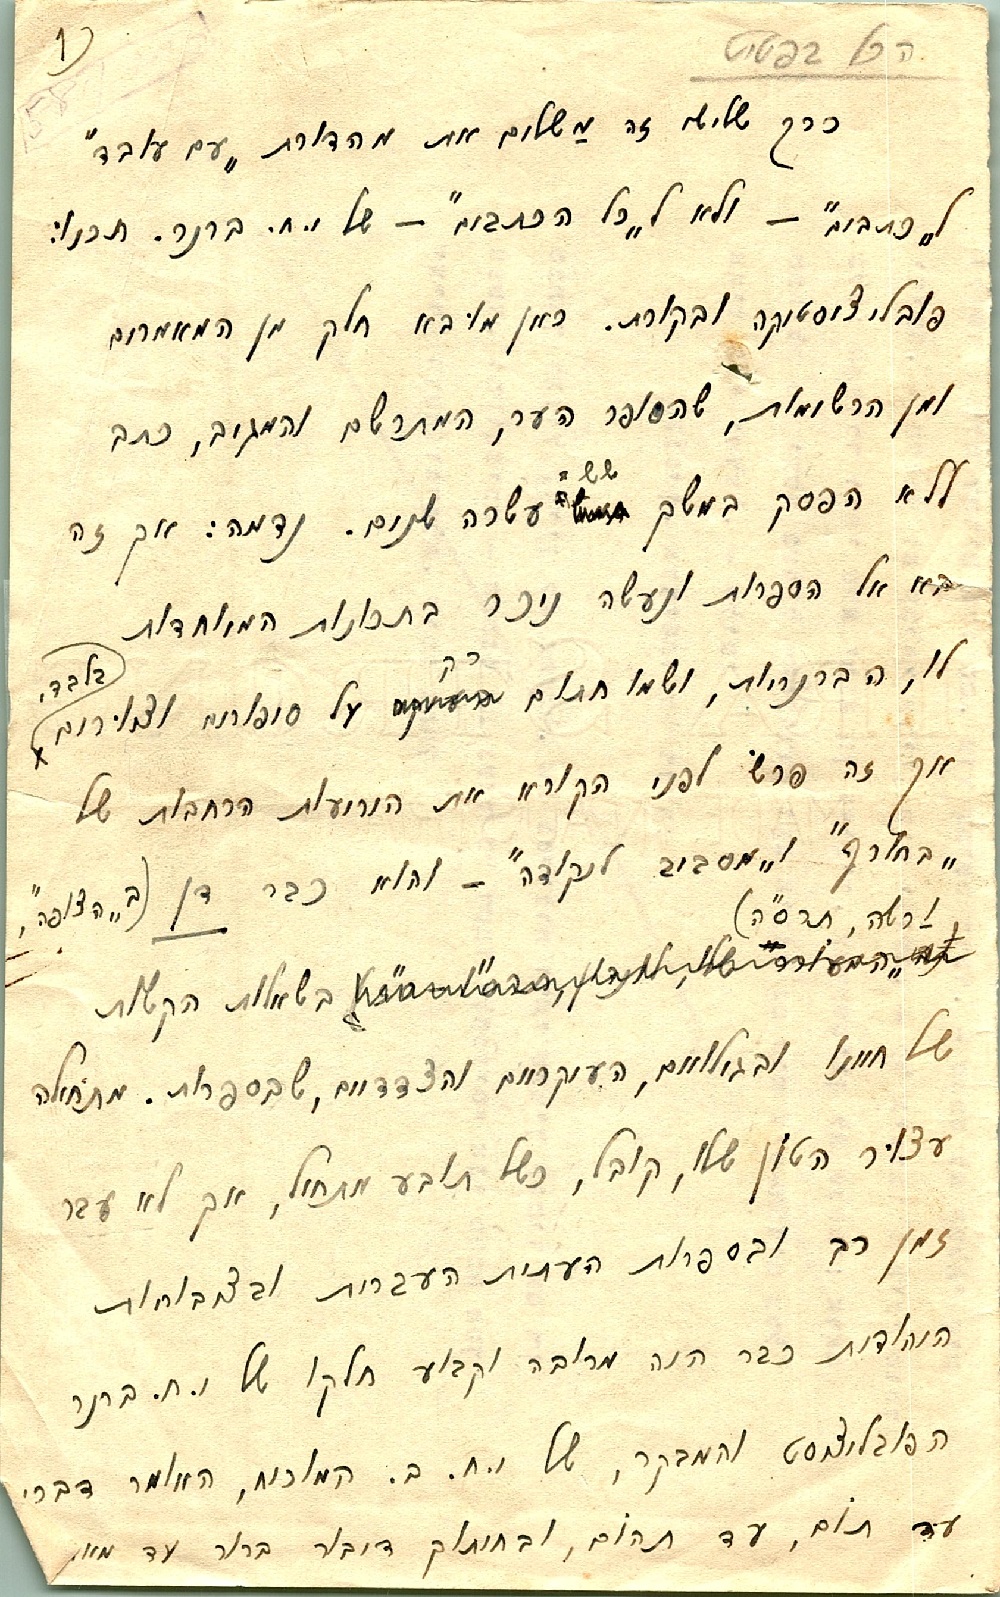 (1
הכל בפטיט
כרך שלישי זה מַשלים את מהדורת „עם עובד"
ל„כתבים" – ולא ל„כל הכתבים" – של י.ח. ברנר. תכנו:
פובליציסטיקה ובקורת. כאן מובא חלק מן המאמרים
ומן הרשומות, שהסופר הער, המתרשם והמגיב, כתב
שש
ללא הפסק במשך עשרה שנים. נדמה: אך זה
בא אל הספרות ונעשה ניכר בתכונות המיוחדות
רק
בלבד,
לו, הברנריות, ושמו חתום על סיפורים וציורים
אך זה פרש לפני הקורא את היריעות הרחבות של
„בחורף" ו„מסביב לנקודה" – והוא כבר דן (ב„הצופה",
ורשה, תרס"ה)
בשאלות הקשות
של חיינו ובגילויים, העיקריים והצדדיים, שבספרות. מתחילה
עצור הטון שלו, קובל, כשל תובע מתחיל, אך לא עבר
זמן רב ובספרות העתית העברית ובצבוריות
היהודית כבר היה מרובה וקבוע חלקו של י.ח. ברנר
הפובליציסט והמבקר, של י.ח. ב. המוכיח, האומר דבריו
עד תום, עד תהום, ובחיתוך דיבור ברור עד מאד